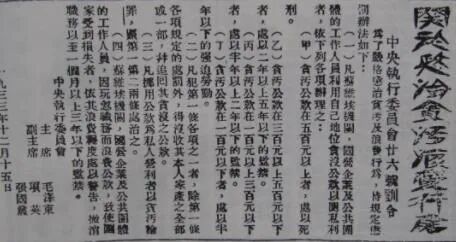 關於懲治貪污浪費行為
中央執行委員會廿六號訓令
為了嚴格懲治貪污及浪費行為，特規定懲
罰辦法如下：
（一）凡蘇維埃機關，國營企業及公共團
體的工作人員利用自己地位貪沒公款以圖私利
者，依下列各項辦理之：
（甲）貪污公款在五百元以上者，處以死
刑。
（乙）貪污公款在三百元以上五百元以下
者，處以二年以上五年以下的監禁。
（丙）貪污公款在一百元以上三百元以下
者，處以半年以上二年以下的監禁。
（丁）貪污公款在一百元以下者，處以半
年以下的強迫勞動。
（二）凡犯第一條各項之一者，除第一條
各項規定的處罰外，得沒收其本人家產之全部
或一部，並追回其貪沒之公款。
（三）凡挪用公款為私人營利者以貪污論
罪，照第一第二兩條處治之。
（四）蘇維埃機關，國營企業及公共團體
的工作人員，因玩忽職務而浪費公款，致使國
家受到損失者，依其浪費程度處以警告，撤消
職務以至一個月以上三年以下的監禁。
中央執行委員會
主席 毛澤東
副主席 項英
張國燾
一九三三年十二月十五日